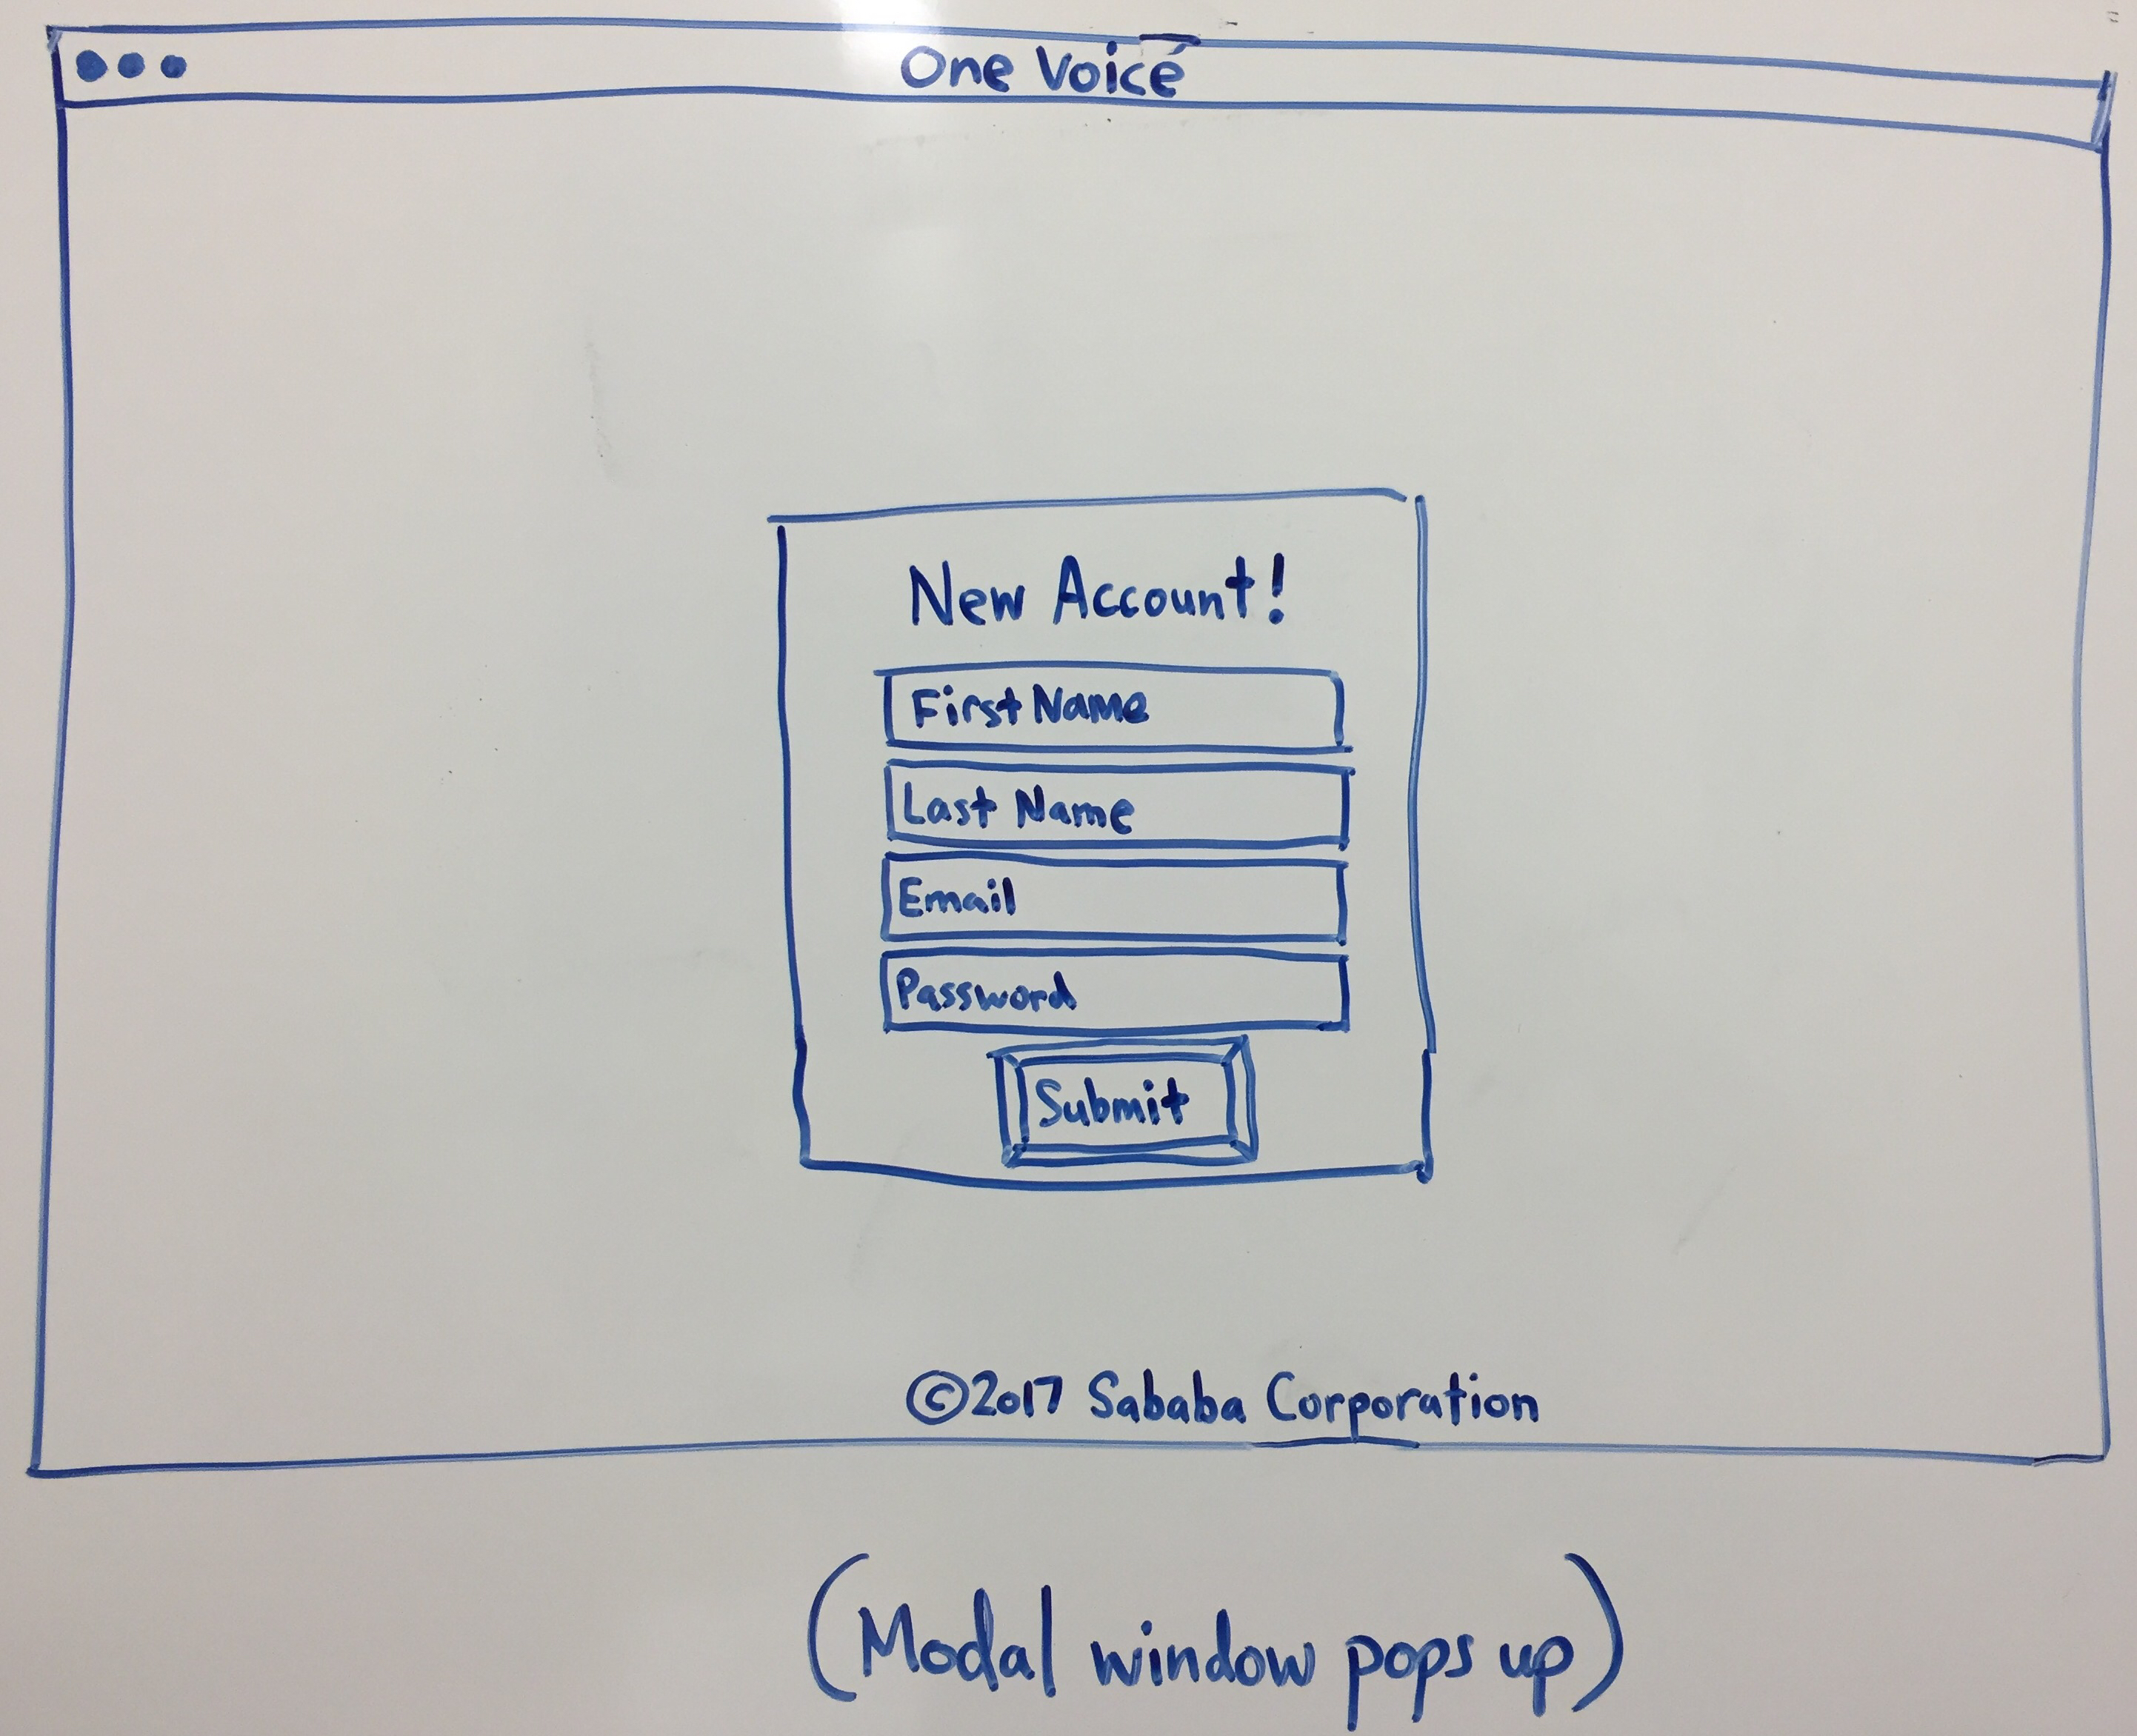 One Voice
New Account!
First Name
Last Name
Email
Password
Submit
©2017 Sababa Corporation
(Modal window pops up)